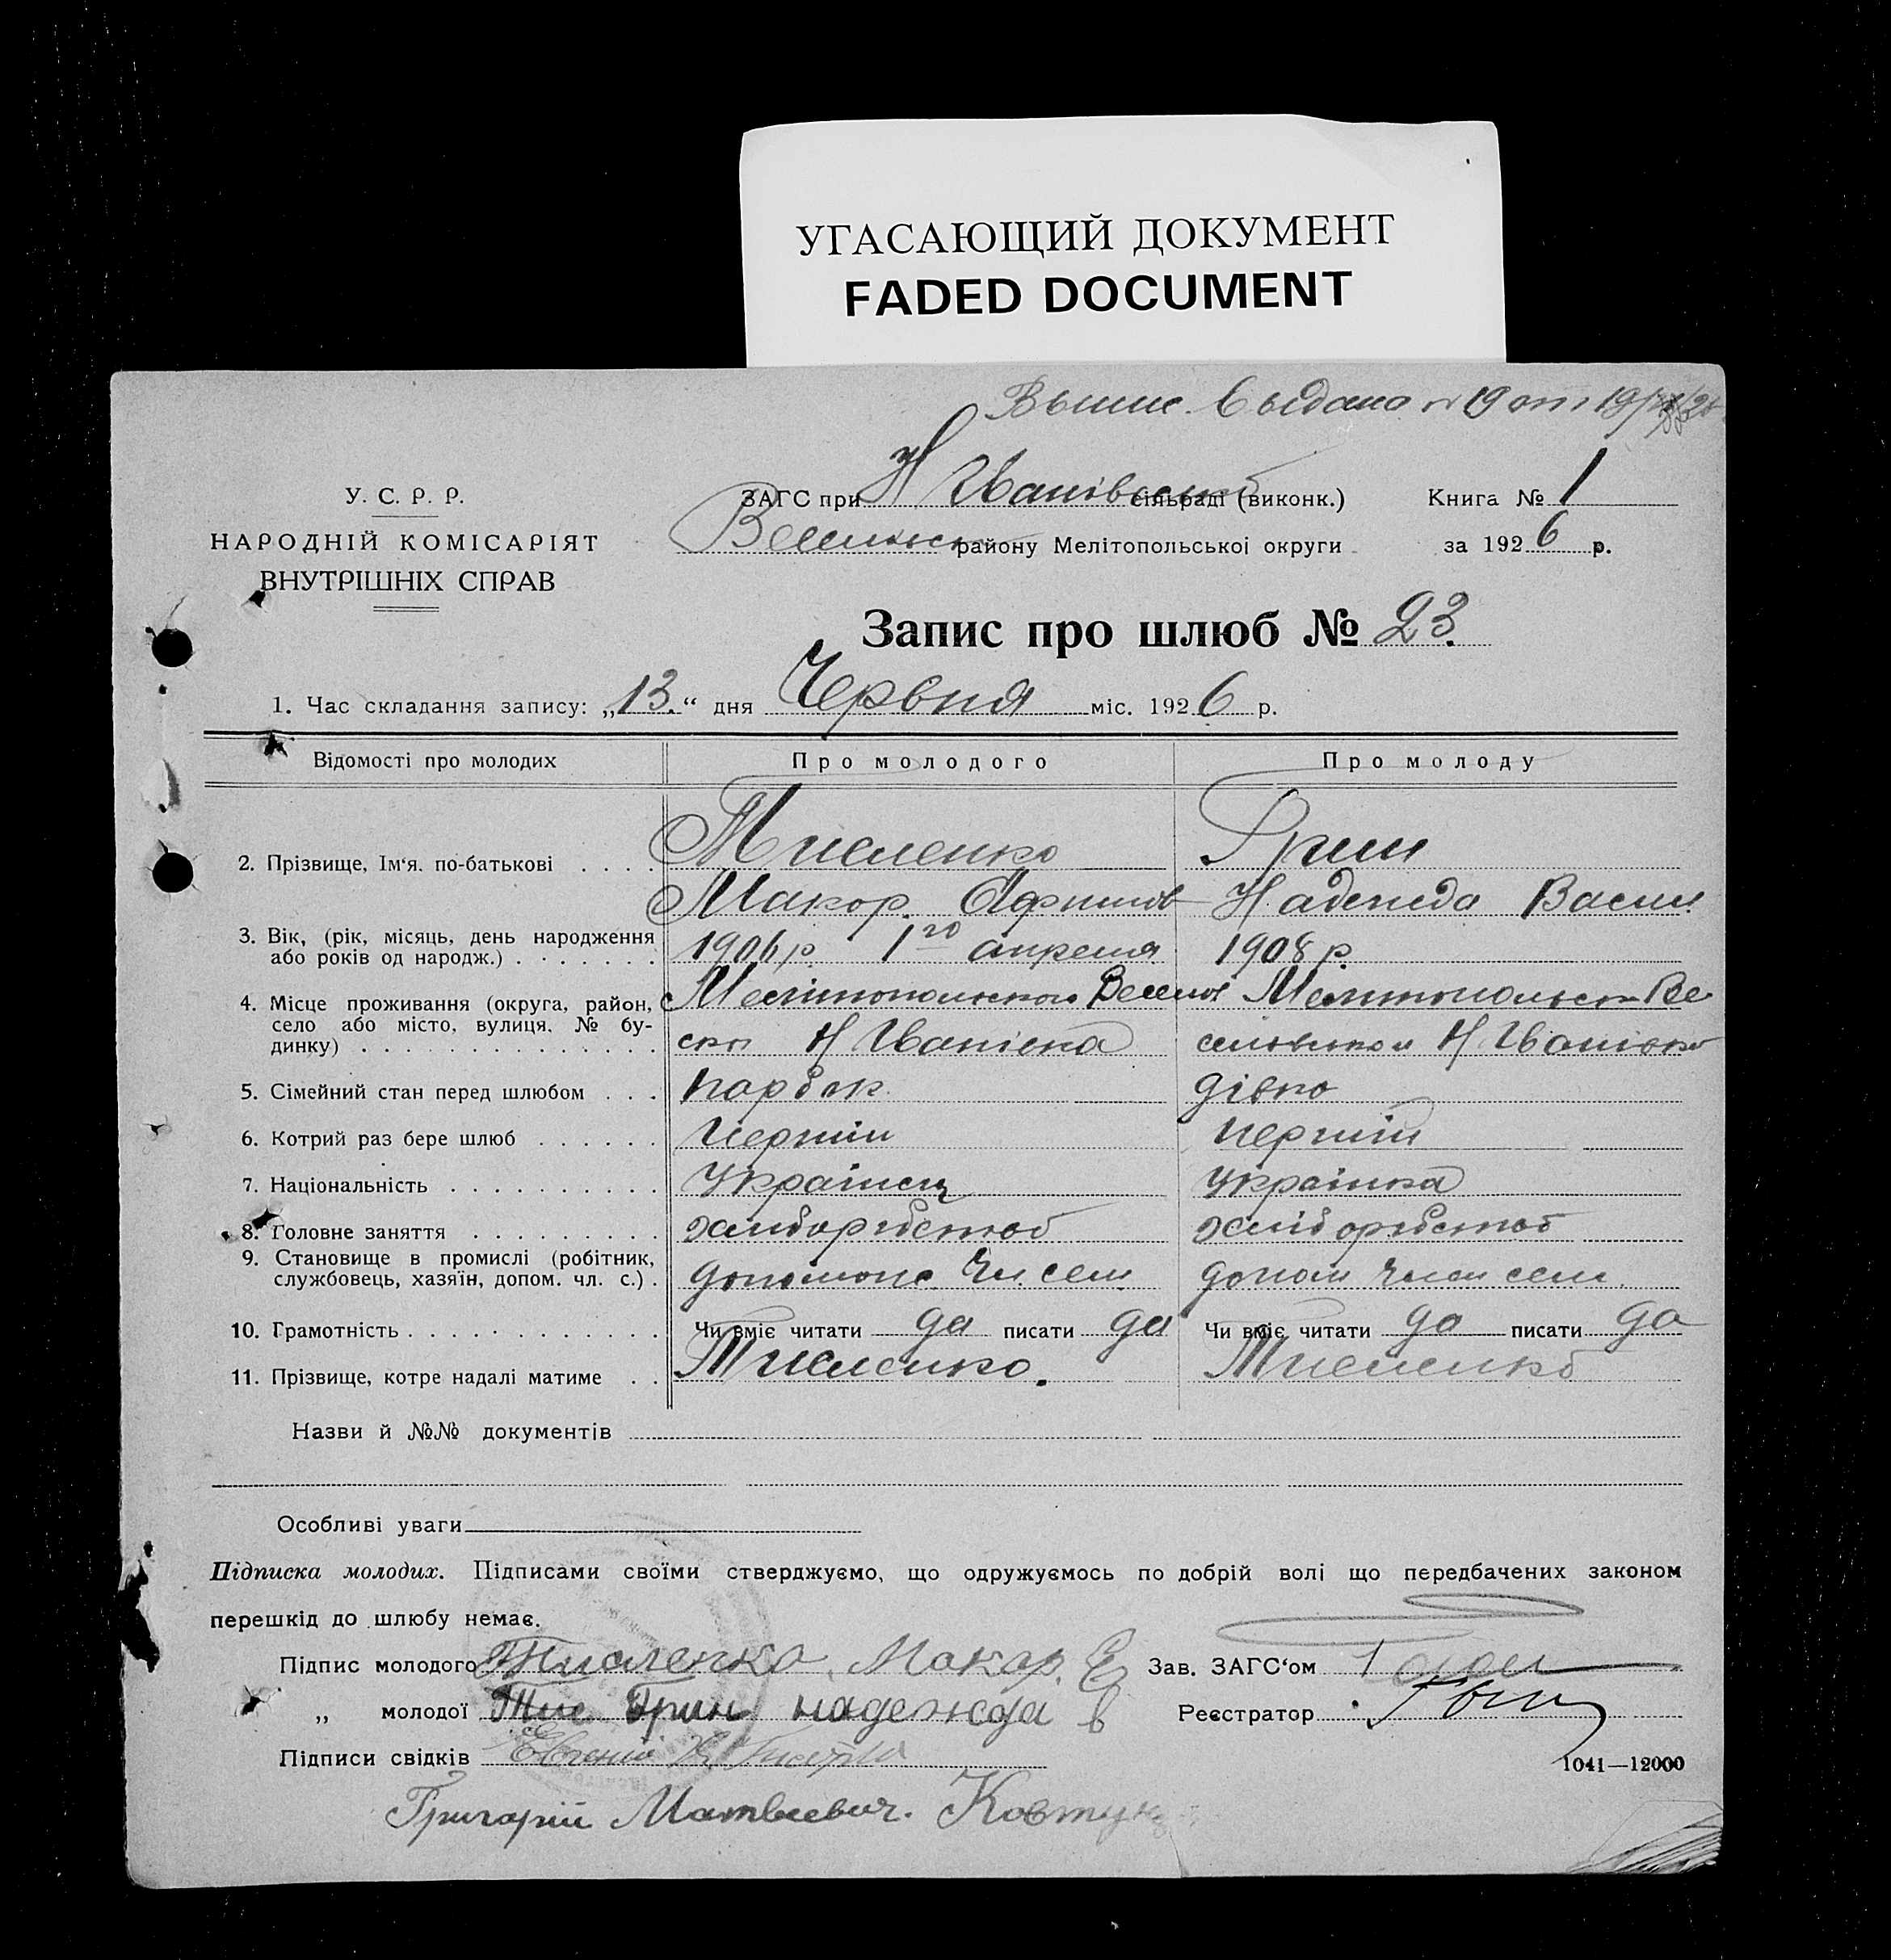 УГАСАЮЩИЙ ДОКУМЕНТ
FADED DOCUMENT
Выпис. выдана № 19 от 19/
У. С. Р. Р.
НАРОДНІЙ КОМІСАРІЯТ
ВНУТРІШНІХ СПРАВ
ЗАГС при Н Іванівської сільраді (виконк.) Книга № 1
району Мелітопольської округи за 1926 р.
Запис про шлюб № 23.
1. Час складання запису: „13.“ дня Червня міс. 1926 р.
Відомості про молодих Про молодого Про молоду
2. Прізвище, Ім‘я, по-батькові . . . . Тисленко Грин
Макар. Надежда Васил.
3. Вік, (рік, місяць, день народження 1906 р. 1го апреля 1908 р.
або років од народж.) . . . . . . .
4. Місце проживання (округа, район, Мелітопольского Весело Мелитопольск Ве
село або місто, вулиця, № бу-
динку) . . . . . . . . . . . . . . ск Н Іванівка Н Іванівка
5. Сімейний стан перед шлюбом . . . парубок дівка
6. Котрий раз бере шлюб . . . . . . перший перший
7. Національність . . . . . . . . . . українец українка
8. Головне заняття . . . . . . . . . хліборобство хліборобство
9. Становище в промислі (робітник,
службовець, хазяїн, допом. чл. с.) . Чл. сем. допом член сем.
10. Грамотність . . . . . . . . . . . . Чи вміє читати да писати да Чи вміє читати да писати да
11. Прізвище, котре надалі матиме . . Тисленко. Тисленко
Назви й №№ документів
Особливі уваги
Підписка молодих. Підписами своїми стверджуємо, що одружуємось по добрій волі що передбачених законом
перешкід до шлюбу немає.
Підпис молодого Тисленко Макар Е Зав. ЗАГС‘ом
„ молодої Тис Грин надежда в Реєстратор
Підписи свідків Евгений
1041—12000
Григорій Матвиевич. Ковтун